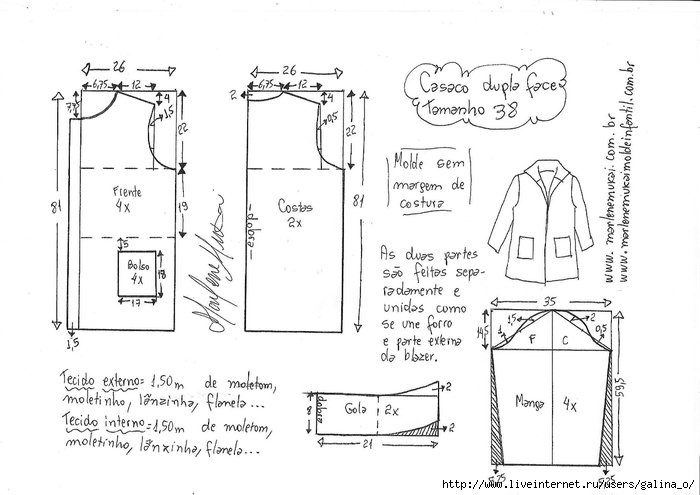 26
6,75
12
7,75
4
1,5
22
81
Frente
4x
19
5
Bolso
4x
18
17
1,5
26
2
6,75
12
4
0,5
22
81
Costas
2x
dobra
Marlene Mukai
Casaco dupla face
tamanho 38
Molde sem
margem de
costura
www.marlenemukai.com.br
www.marlenemukaimoldeinfantil.com.br
As duas partes
são feitas sepa-
radamente e
unidas como
se une forro
e parte externa
da blazer.
35
14,5
1
1,5
2
0,5
F
C
Manga
4x
59,5
Tecido externo=1,50m de moletom,
moletinho, lãnzinha, flanela...
Tecido interno=1,50m de moletom,
moletinho, lãnzinha, flanela...
8
dobra
Gola
2x
2
2
21
http://www.liveinternet.ru/users/galina_o/